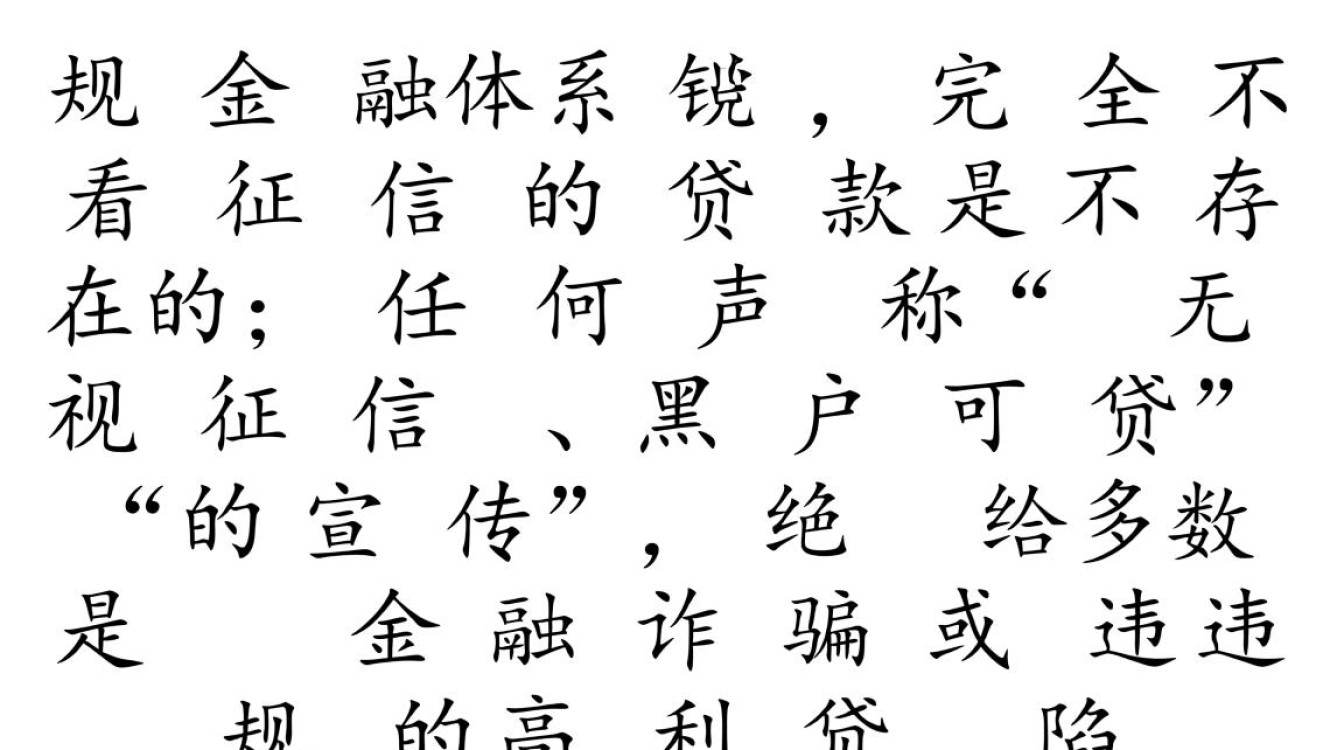 规金融体系锐，完全不
看征信的贷款是不存
在的；任何声称“无
视征信、黑户可贷”
“的宣传”，绝给多数
是金融诈骗或违违
规的高利贷陷